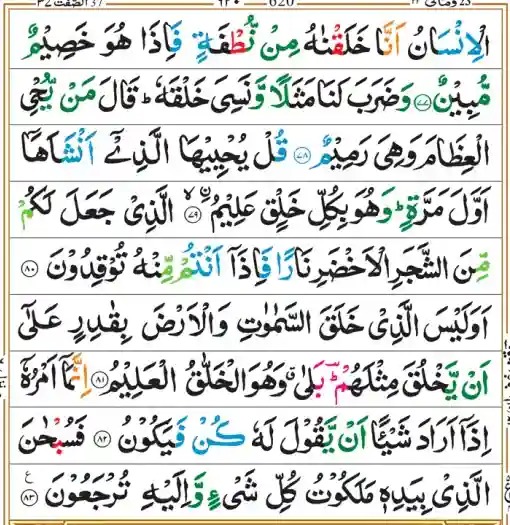 الۡاِنۡسَانُ اَنَّا خَلَقۡنٰهُ مِنۡ نُّطۡفَةٍ فَاِذَا هُوَ خَصِيۡمٌ
مُّبِيۡنٌ ﴿۷۷﴾ وَضَرَبَ لَنَا مَثَلًا وَّنَسِىَ خَلۡقَهٗ ؕ قَالَ مَنۡ يُّحۡىِ
الۡعِظَامَ وَهِىَ رَمِيۡمٌ ﴿۷۸﴾ قُلۡ يُحۡيِيۡهَا الَّذِىۡۤ اَنۡشَاَهَاۤ
اَوَّلَ مَرَّةٍ ؕ وَهُوَ بِكُلِّ خَلۡقٍ عَلِيۡمُ ۨ ﴿۷۹﴾ ۙ الَّذِىۡ جَعَلَ لَكُمۡ
مِّنَ الشَّجَرِ الۡاَخۡضَرِ نَارًا فَاِذَاۤ اَنۡتُمۡ مِّنۡهُ تُوۡقِدُوۡنَ ﴿۸۰﴾
اَوَلَيۡسَ الَّذِىۡ خَلَقَ السَّمٰوٰتِ وَالۡاَرۡضَ بِقٰدِرٍ عَلٰٓى
اَنۡ يَّخۡلُقَ مِثۡلَهُمۡ ؕ بَلٰى وَهُوَ الۡخَلّٰقُ الۡعَلِيۡمُ ﴿۸۱﴾ اِنَّمَاۤ اَمۡرُهٗۤ
اِذَاۤ اَرَادَ شَيۡـًٔـا اَنۡ يَّقُوۡلَ لَهٗ كُنۡ فَيَكُوۡنُ ﴿۸۲﴾ فَسُبۡحٰنَ
الَّذِىۡ بِيَدِهٖ مَلَكُوۡتُ كُلِّ شَىۡءٍ وَّاِلَيۡهِ تُرۡجَعُوۡنَ ﴿۸۳﴾